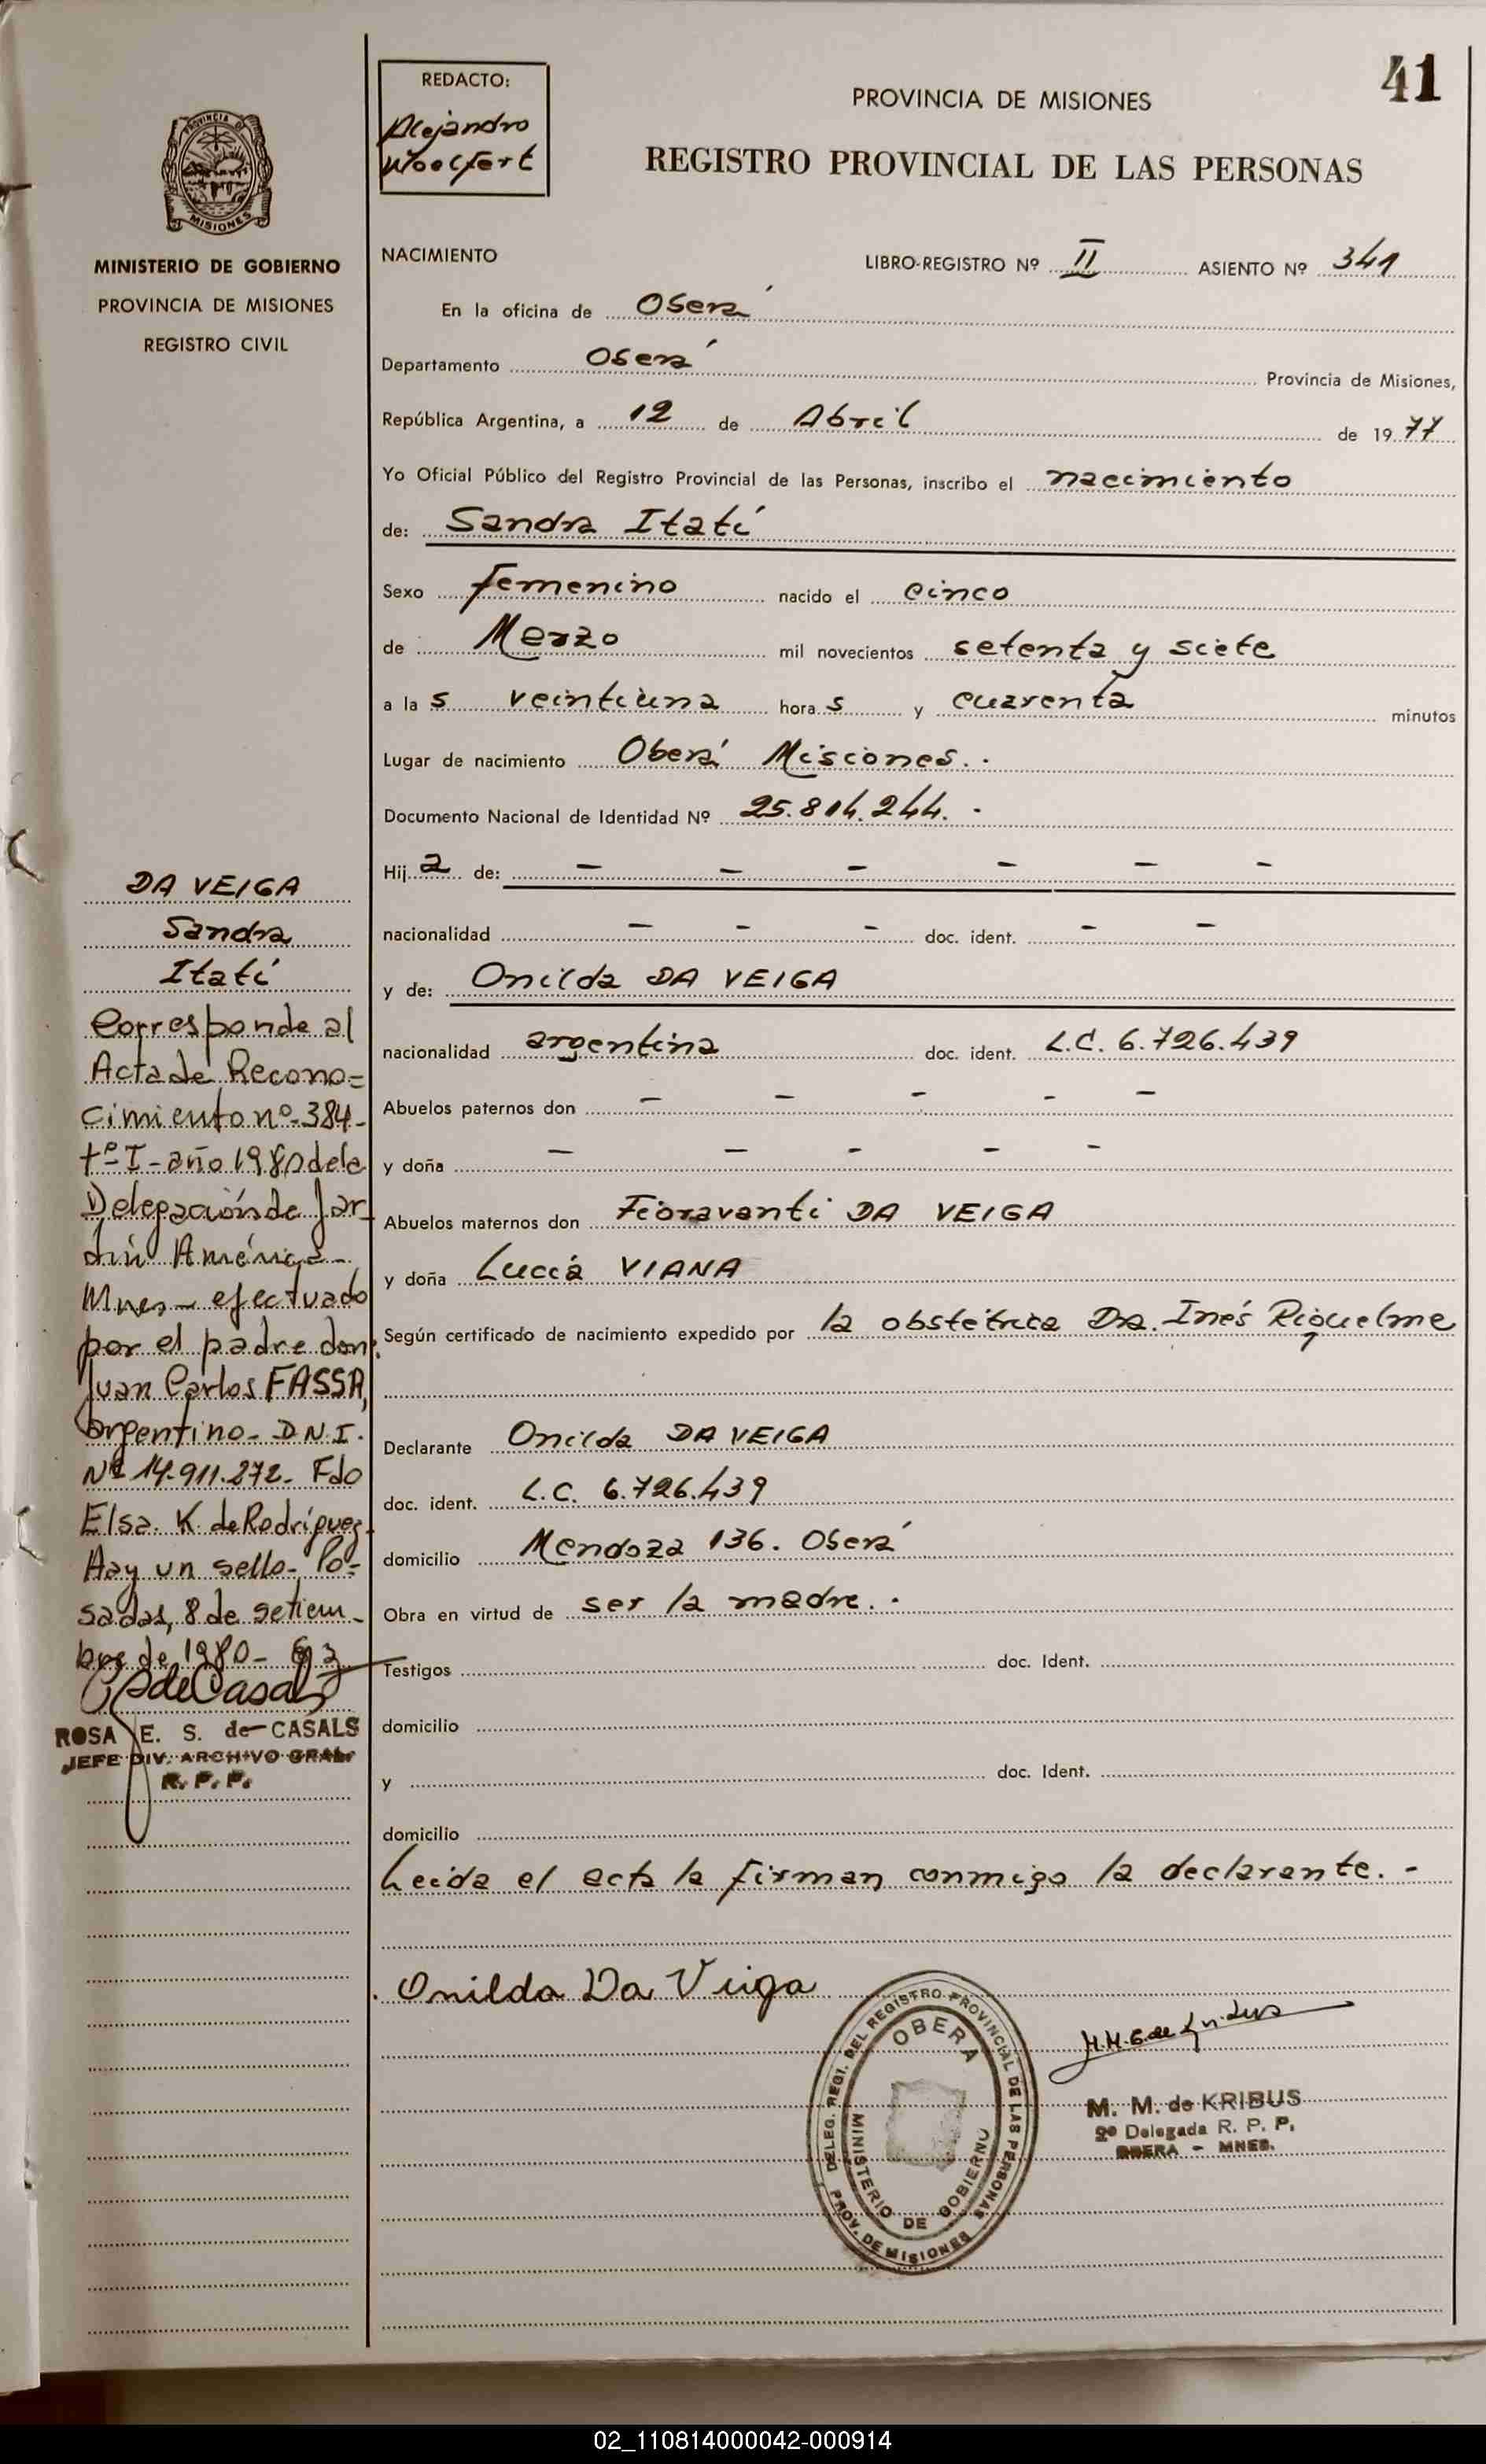 41
REDACTO:
Alejandro
Woelfert
PROVINCIA DE MISIONES
REGISTRO PROVINCIAL DE LAS PERSONAS
PROVINCIA DE
MISIONES
MINISTERIO DE GOBIERNO
PROVINCIA DE MISIONES
REGISTRO CIVIL
NACIMIENTO
LIBRO-REGISTRO Nº II ASIENTO Nº 341
En la oficina de Oberá
Departamento Oberá Provincia de Misiones,
República Argentina, a 12 de Abril de 1977
Yo Oficial Público del Registro Provincial de las Personas, inscribo el nacimiento
de: Sandra Itatí
Sexo femenino nacido el cinco
de Marzo mil novecientos setenta y siete
a las veintiuna horas y cuarenta minutos
Lugar de nacimiento Oberá Misiones. -
Documento Nacional de Identidad Nº 25.814.244. -
Hija de: - - - - - -
nacionalidad - - - doc. ident. - -
y de: Onilda DA VEIGA
nacionalidad argentina doc. ident. L.C. 6.726.439
Abuelos paternos don - - - - -
y doña - - - - -
Abuelos maternos don Fioravanti DA VEIGA
y doña Lucía VIANA
Según certificado de nacimiento expedido por la obstétrica Dra. Inés Riquelme
Declarante Onilda DA VEIGA
doc. ident. L.C. 6.726.439
domicilio Mendoza 136. Oberá
Obra en virtud de ser la madre. -
Testigos doc. Ident.
domicilio
y doc. Ident.
domicilio
Leída el acta la firman conmigo la declarante. -
Onilda Da Veiga
DELEG. REGI. DEL REGISTRO PROVINCIAL DE LAS PERSONAS
PROV. DE MISIONES
OBERA
MINISTERIO DE GOBIERNO
M. M. de KRIBUS
2º Delegada R. P. P.
OBERA - MNES.
DA VEIGA
Sandra
Itatí
Corresponde al
Acta de Recono=
cimiento nº 384-
tº I - año 1980 de la
Delegación de Jar-
dín América-
Mnes - efectuado
por el padre don:
Juan Carlos FASSA,
argentino- D.N.I.
Nº 14.911.272- Fdo
Elsa. K. de Rodríguez-
Hay un sello- Po-
sadas, 8 de setiem-
bre de 1980-
ROSA E. S. de CASALS
JEFE DIV. ARCHIVO GRAL.
R. P. P.
02_110814000042-000914